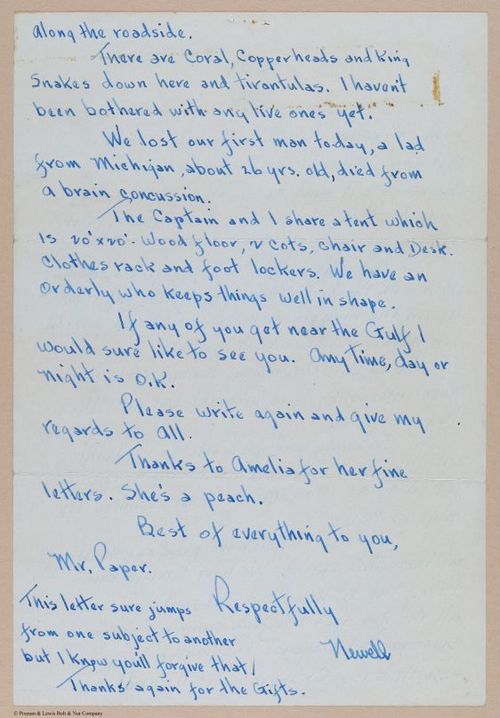 along the roadside.
There are Coral, Copperheads and King
Snakes down here and tirantulas. I haven't
been bothered with any live ones yet.
We lost our first man today, a lad
from Michigan, about 26 yrs. old, died from
a brain concussion.
The Captain and I share a tent which
is 20'x20'. Wood floor, 2 cots, chair and Desk.
Clothes rack and foot lockers. We have an
Orderly who keeps things well in shape.
If any of you get near the Gulf I
would sure like to see you. Any Time, day or
night is O.K.
Please write again and give my
regards to all.
Thanks to Amelia for her fine
letters. She's a peach.
Best of everything to you,
Mr. Paper.
Respectfully
Newell
This letter sure jumps
from one subject to another
but I know you'll forgive that!
Thanks again for the Gifts.
© Pioxum & Lewis Bolt & Nut Company